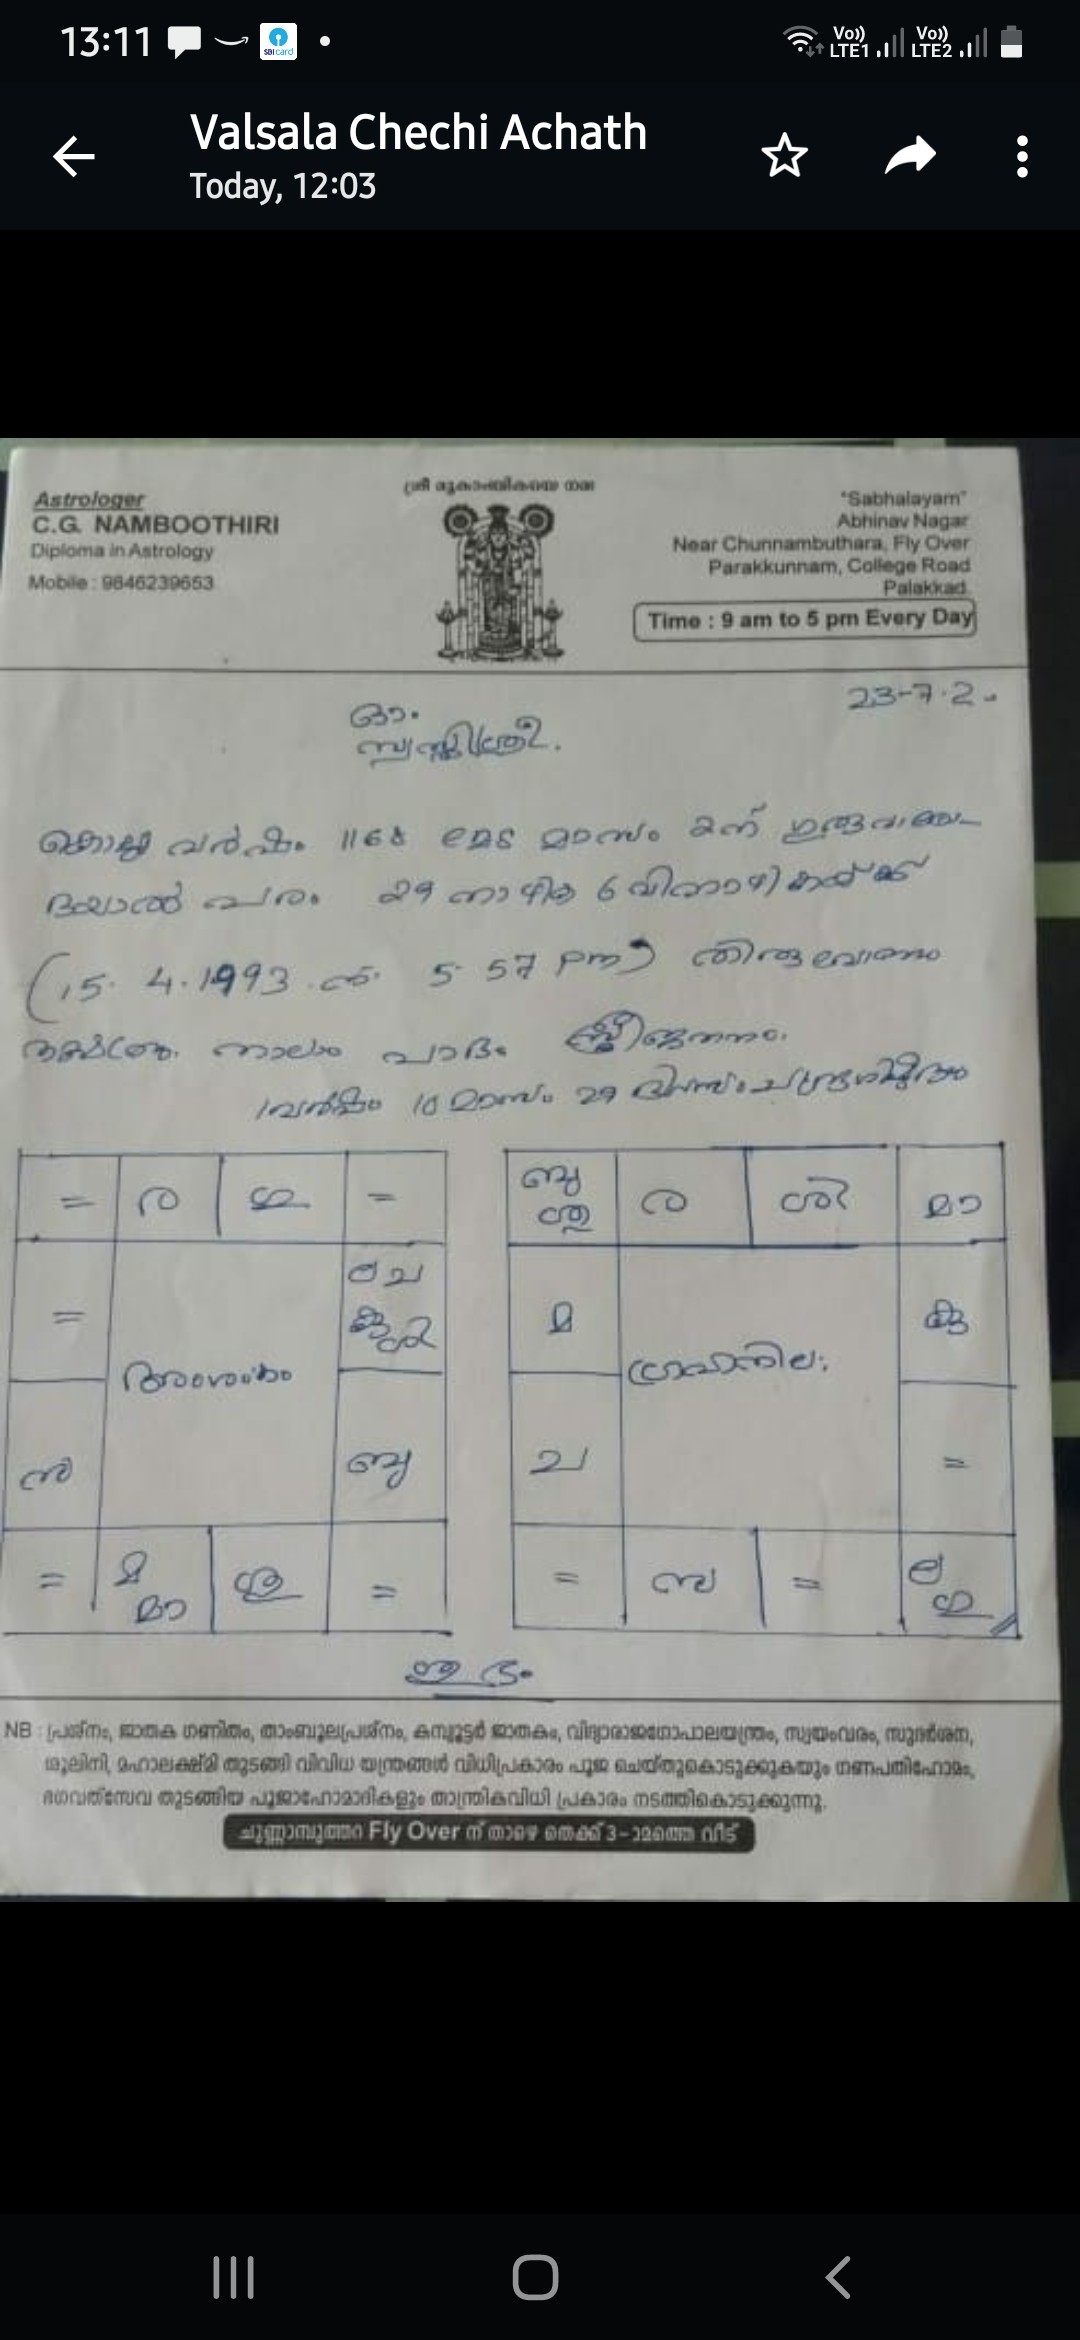 13:11
SBI card
Vo)) LTE1 Vo)) LTE2
Valsala Chechi Achath
Today, 12:03
ശ്രീ മൂകാംബികയൈ നമഃ
Astrologer
C.G. NAMBOOTHIRI
Diploma in Astrology
Mobile : 9846239653
"Sabhalayam"
Abhinav Nagar
Near Chunnambuthara, Fly Over
Parakkunnam, College Road
Palakkad.
Time : 9 am to 5 pm Every Day
23-7-2
ഓം
സ്വസ്തിശ്രീ.
കൊല്ല വർഷം 1168 മേട മാസം 2ന്
പരം 29 നാഴിക 6
(15. 4. 1993 ൽ 5 57 pm ന്) തിരുവോണം
നാലാം പാദം സ്ത്രീജനനം.
10 മാസം 29
= ര ഗു =
ല ച
=
അംശകം
ബു
= മ മാ =
ബു ശു ര ശി മാ
മ കു
ഗ്രഹനില:
ച =
= സ = ല ഗു
ശുഭം
NB : പ്രശ്നം, ജാതക ഗണിതം, താംബൂലപ്രശ്നം, കമ്പ്യൂട്ടർ ജാതകം, വിദ്യാരാജഗോപാലയന്ത്രം, സ്വയംവരം, സുദർശന,
ശൂലിനി, മഹാലക്ഷ്മി തുടങ്ങി വിവിധ യന്ത്രങ്ങൾ വിധിപ്രകാരം പൂജ ചെയ്തുകൊടുക്കുകയും ഗണപതിഹോമം,
ഭഗവത്സേവ തുടങ്ങിയ പൂജാഹോമാദികളും താന്ത്രികവിധി പ്രകാരം നടത്തികൊടുക്കുന്നു.
ചുണ്ണാമ്പുത്തറ Fly Over ന് താഴെ തെക്ക് 3-ാമത്തെ വീട്